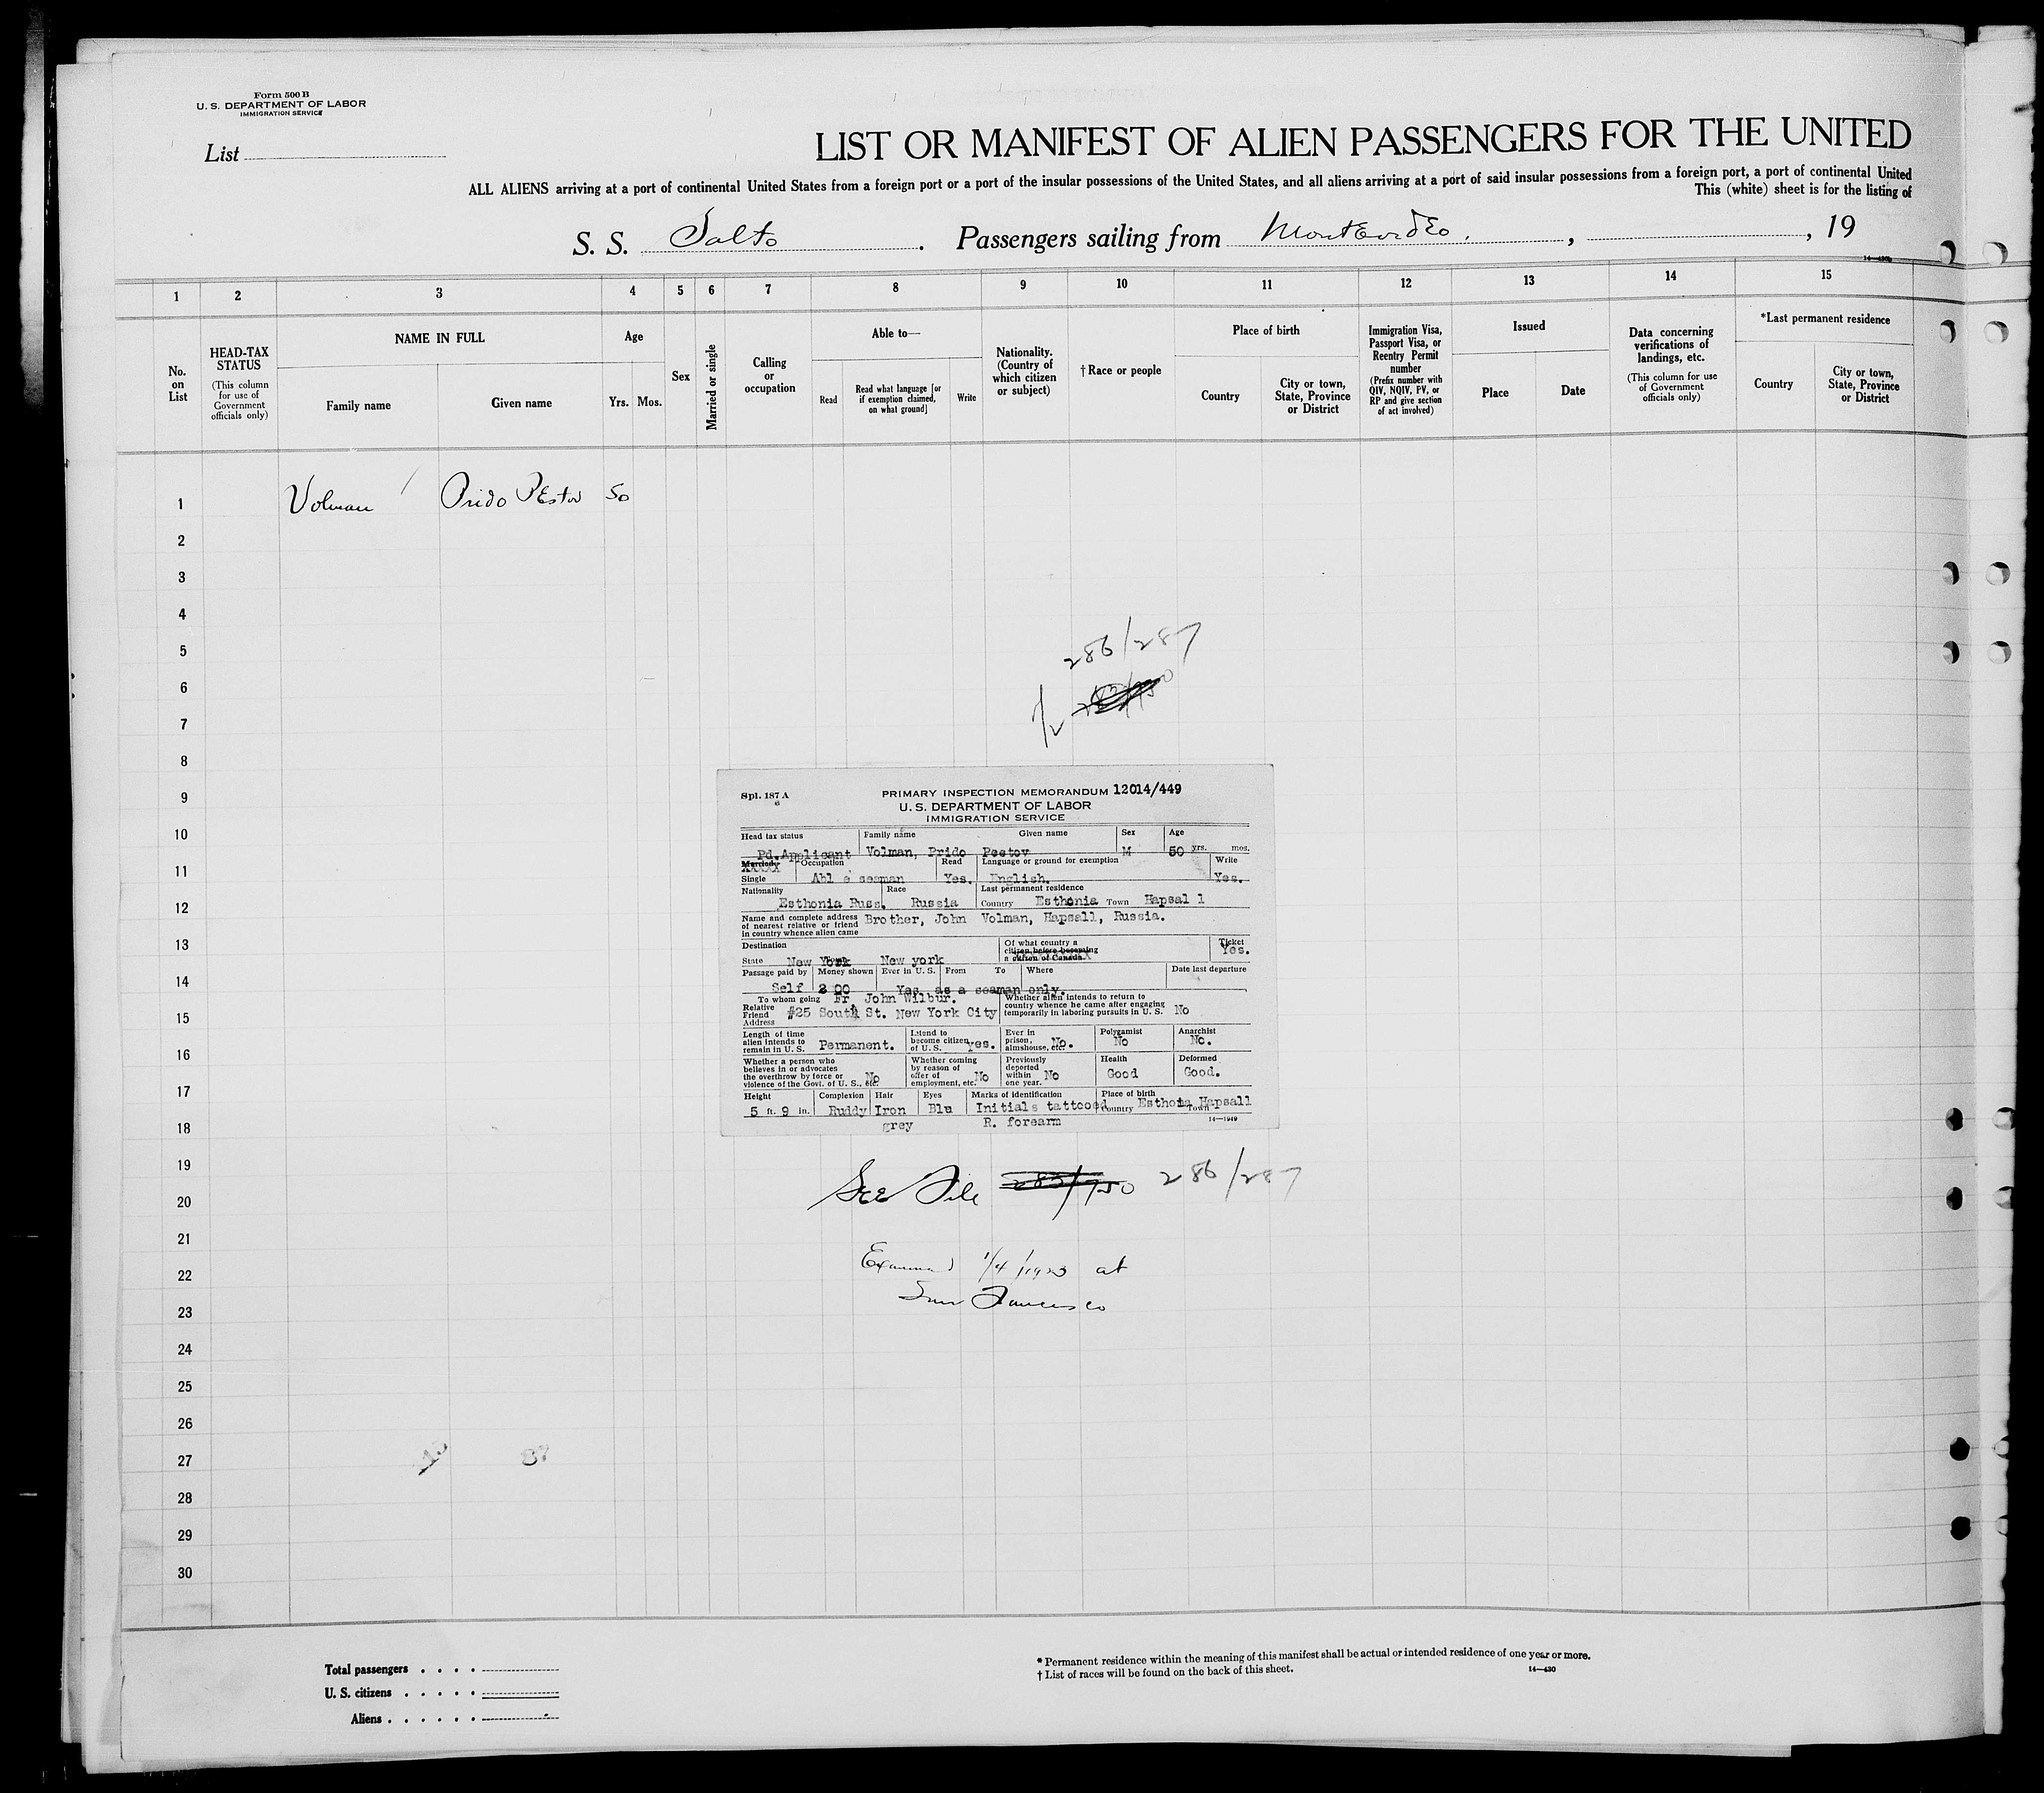 Form 500 B
U. S. DEPARTMENT OF LABOR
IMMIGRATION SERVICE
List
LIST OR MANIFEST OF ALIEN PASSENGERS FOR THE UNITED
ALL ALIENS arriving at a port of continental United States from a foreign port or a port of the insular possessions of the United States, and all aliens arriving at a port of said insular possessions from a foreign port, a port of continental United
This (white) sheet is for the listing of
S. S. Salto . Passengers sailing from Montevideo. , , 19
14—430
1 2 3 4 5 6 7 8 9 10 11 12 13 14 15
No. on List
HEAD-TAX STATUS
(This column for use of Government officials only)
NAME IN FULL
Family name
Given name
Age
Yrs. Mos.
Sex
Married or single
Calling or occupation
Able to—
Read
Read what language [or if exemption claimed, on what ground]
Write
Nationality. (Country of which citizen or subject)
† Race or people
Place of birth
Country
City or town, State, Province or District
Immigration Visa, Passport Visa, or Reentry Permit number
(Prefix number with QIV, NQIV, PV, or RP and give section of act involved)
Issued
Place
Date
Data concerning verifications of landings, etc.
(This column for use of Government officials only)
*Last permanent residence
Country
City or town, State, Province or District
1 Volman Prido Peetov 50
2
3
4
5
286/287
6
7
8
9
10
11
12
13
14
15
16
17
18
19
20
21
22
23
24
25
26
27
28
29
30
Spl. 187 A
6
PRIMARY INSPECTION MEMORANDUM 12014/449
U. S. DEPARTMENT OF LABOR
IMMIGRATION SERVICE
Head tax status Family name Given name Sex Age
Pd. Applicant Volman, Prido Peetov M 50 yrs. mos.
Married Occupation Read Language or ground for exemption Write
Single Abl e seaman Yes. English. Yes.
Nationality Race Last permanent residence
Esthonia Russ. Russia Country Esthonia Town Hapsal l
Name and complete address of nearest relative or friend in country whence alien came Brother, John Volman, Hapsall, Russia.
Destination Of what country a citizen before becoming a citizen of Canada Ticket Yes.
State New York New york
Passage paid by Money shown Ever in U. S. From To Where Date last departure
Self 2 00 Yes, as a seaman only.
To whom going Fr John Wilbur.
Relative Friend Address #25 South St. New York City
Whether alien intends to return to country whence he came after engaging temporarily in laboring pursuits in U. S. No
Length of time alien intends to remain in U. S. Permanent. Intend to become citizen of U. S. yes. Ever in prison, almshouse, etc. No. Polygamist No Anarchist No.
Whether a person who believes in or advocates the overthrow by force or violence of the Govt. of U. S., etc. No Whether coming by reason of offer of employment, etc. No Previously deported within one year. No Health Good Deformed Good.
Height Complexion Hair Eyes Marks of identification Place of birth
5 ft. 9 in. Ruddy Iron Blu Initials tattooed Country Esthoia Town Hapsall
grey R. forearm 14—1949
See File 283/750 286/287
Examined 1/4/1923 at
San Francisco
Total passengers
U. S. citizens
Aliens
* Permanent residence within the meaning of this manifest shall be actual or intended residence of one year or more.
† List of races will be found on the back of this sheet.
14—430